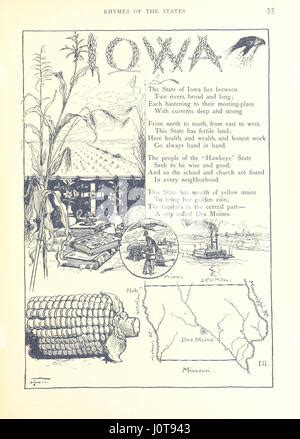 RHYMES OF THE STATES 55
IOWA
The State of Iowa lies between
Two rivers, broad and long;
Each hastening to their meeting-place
With currents deep and strong.
From north to south, from east to west,
This State has fertile land;
Here health, and wealth, and honest work
Go always hand in hand.
The people of the "Hawkeye" State
Seek to be wise and good,
And so the school and church are found
In every neighborhood.
This State has wealth of yellow maize
To bring her golden coin;
The capital's in the central part—
A city called Des Moines.
Minn.
Neb
Des Moines
Missouri
Ill.
alamy stock photo
J0T943
www.alamy.com